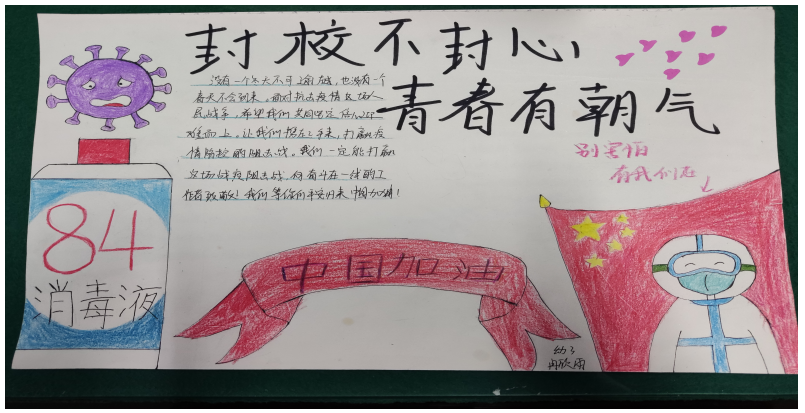 封校不封心
青春有朝气
没有一个冬天不可逾越，也没有一个
春天不会到来。面对抗击疫情这场人
民战争，希望我们共同坚定信心
难而上，让我们携起手来，打赢疫
情防控的阻击战。我们一定能打赢
这场战疫阻击战，向奋斗在一线的工
作者致敬！我们等你们平安归来！中国加油！
别害怕
有我们在
84
消毒液
中国加油
幼3
冉欣雨